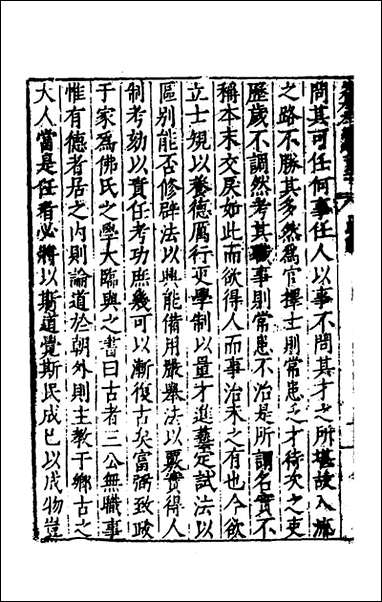 問其可任何事任人以事不問其才之所堪故入流
之路不勝其多然爲官擇士則常患乏才待次之吏
歷歲不調然考其職事則常患不治是所謂名實不
稱本末交戾如此而欲得人而事治未之有也今欲
立士規以養德厲行更學制以量才進藝定試法以
區別能否修辟法以興能備用嚴舉法以覈實得人
制考劾以責任考功庶幾可以漸復古矣富弼致政
于家爲佛氏之學大臨與之書曰古者三公無職事
惟有德者居之内則論道於朝外則主教于鄉古之
大人當是任者必將以斯道覺斯民成已以成物豈